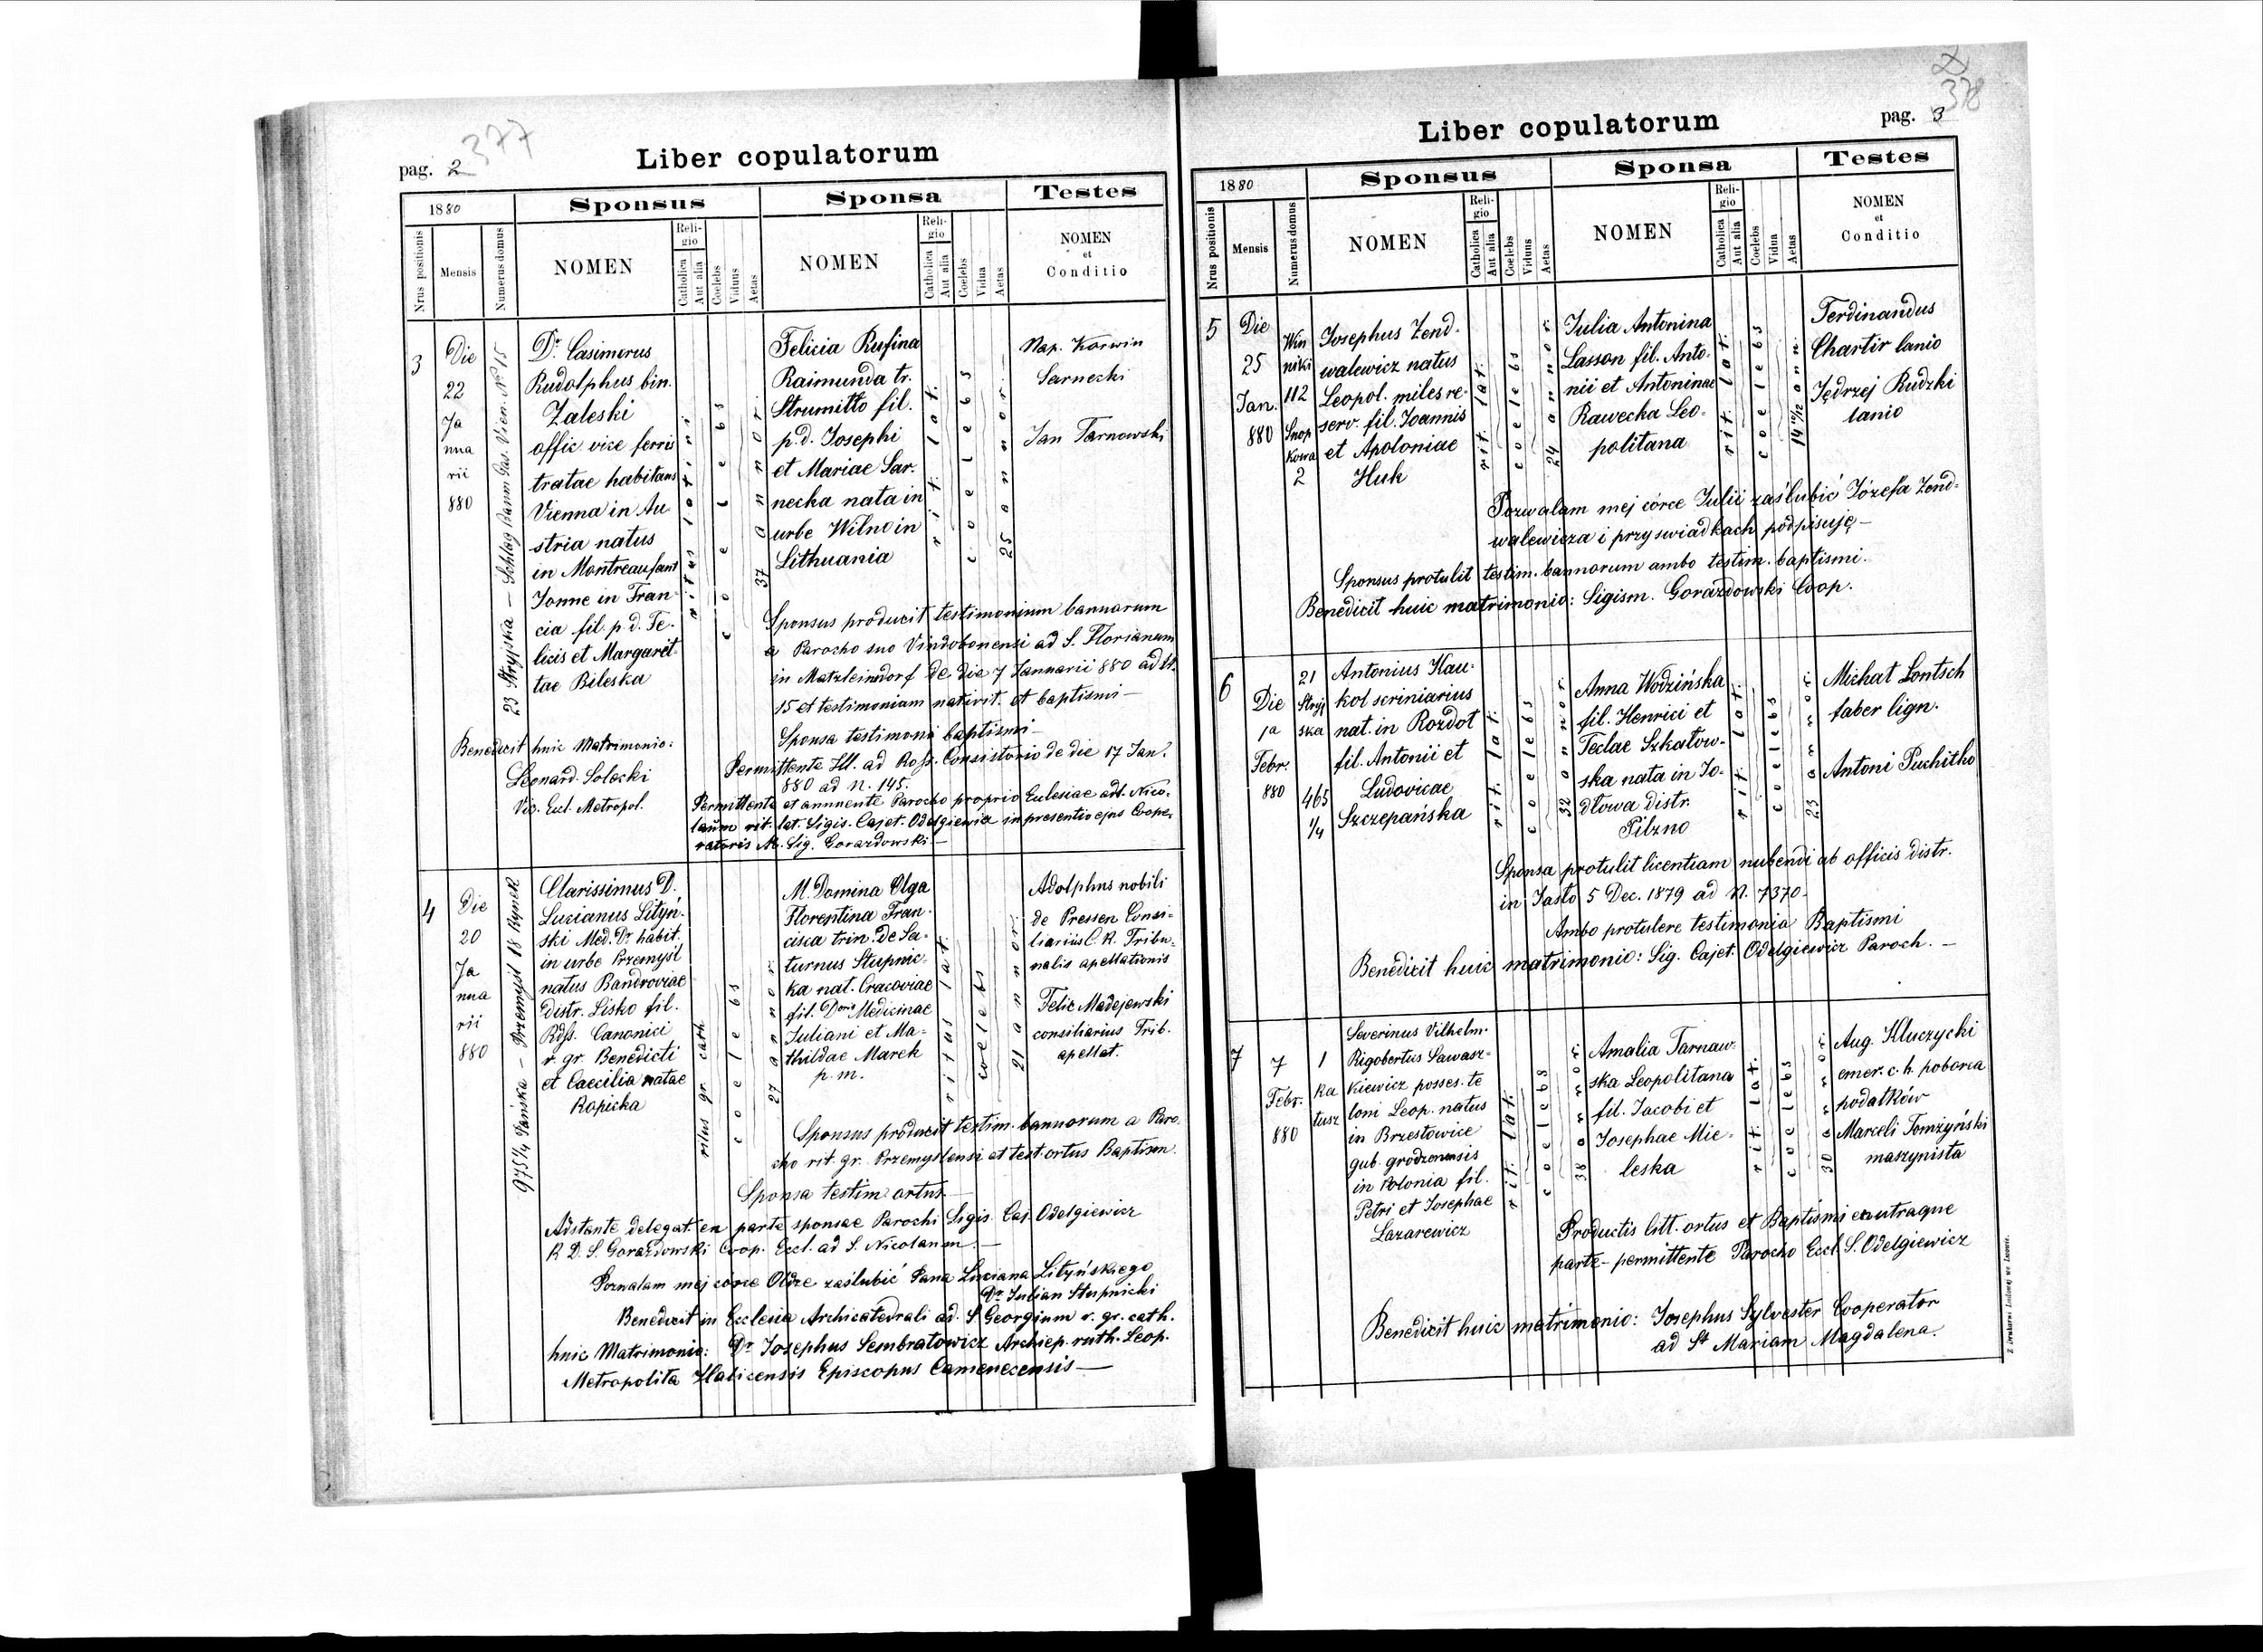 377
pag. 2
Liber copulatorum
1880
Sponsus
Sponsa
Testes
Nrus positionis
Mensis
Numerus domus
NOMEN
Religio
Catholica
Aut alia
Coelebs
Viduus
Aetas
NOMEN
Religio
Catholica
Aut alia
Coelebs
Vidua
Aetas
NOMEN
et
Conditio
3
Die
22
Ja
nua
rii
880
23 Stryjska — Schlag Baum Gas. Vien. No 15
Dr. Casimirus
Rudolphus bin.
Zaleski
offic vice ferris
tratae habitans
Vienna in Au
stria natus
in Montreau faut
Jonne in Fran
cia fil. p. d. Fe-
licis et Margarit-
tae Bileska
ritus latini
coelebs
37 annor.
Felicia Rufina
Raimunda tr.
Strumiłło fil.
p. d. Josephi
et Mariae Sar-
necka nata in
urbe Wilno in
Lithuania
rit. lat.
coelebs
25 annor.
Nap. Korwin
Sarnecki
Jan Tarnowski
Sponsus producit testimonium bannorum
a Parocho suo Vindobonensi ad S. Florianum
in Matzleinsdorf de die 7 Januarii 880 ad N.
15 et testimoniam nativit. et baptismi —
Sponsa testimoni baptismi —
Benedicit huic Matrimonio:
Leonard. Solecki
Vic. Eccl. Metropol.
Permittente Ill. ad Rss. Consistorio de die 17 Jan.
880 ad N. 145.
Permittente et annuente Parocho proprio Eclesiae ad S. Nico-
laum rit. lat. Sigis. Cajet. Odelgiewicz in presentia ejus Coope-
ratoris M. Sig. Gorazdowski —
4
Die
20
Ja
nua
rii
880
975 1/4 Pańska — Przemyśl 18 Rynek
Clarissimus D.
Lucianus Lityń-
ski Med. Dr habit.
in urbe Przemyśl
natus Bandroviae
distr. Lisko fil.
Rdss. Canonici
r. gr. Benedicti
et Caecilia natae
Ropicka
ritus gr. cath.
coelebs
27 annor.
M. Domina Olga
Florentina Fran-
cisca trin. De Sa-
turnus Stupnic-
ka nat. Cracoviae
fil. Doris Medicinae
Juliani et Ma-
thildae Marek
p. m.
ritus lat.
coelebs
21 annor.
Adolphus nobili
de Pressen Consi-
liarius C. R. Tribu-
nalis apellationis
Felix Madejewski
consiliarius Trib.
apellat.
Sponsus producit testim. bannorum a Paro-
cho rit. gr. Przemyslensi et test. ortus Baptism.
Sponsa testim ortus —
Adstante delegat ex parte sponsae Parochi Sigis. Caj. Odelgiewicz
R. D. S. Gorazdowski Coop. Eccl. ad S. Nicolaum. —
Pozwalam mej córce Oldze zaślubić Pana Luciana Lityńskiego
Dr. Julian Stupnicki
Benedixit in Ecclesia Archicatedrali ad. S Georgium r. gr. cath.
huic Matrimonio: Dr Josephus Sembratowicz Archiep. ruth. Leop.
Metropolita Halicensis Episcopus Camenecensis —
378
pag. 3
Liber copulatorum
1880
Sponsus
Sponsa
Testes
Nrus positionis
Mensis
Numerus domus
NOMEN
Religio
Catholica
Aut alia
Coelebs
Viduus
Aetas
NOMEN
Religio
Catholica
Aut alia
Coelebs
Vidua
Aetas
NOMEN
et
Conditio
5
Die
25
Jan.
880
Win
niki
112
Snop
kowa
2
Josephus Zend-
walewicz natus
Leopol. miles re-
serv. fil. Joannis
et Apoloniae
Huk
rit. lat.
coelebs
24 annor.
Julia Antonina
Lasson fil. Anto-
nii et Antoninae
Rawecka Leo-
politana
rit. lat.
coelebs
14 10/12 ann.
Ferdinandus
Chartir lanio
Jędrzej Rudzki
lanio
Pozwalam mej córce Julii zaślubić Józefa Zend-
walewicza i przy swiadkach podpisuję —
Sponsus protulit testim. bannorum ambo testim. baptismi.
Benedicit huic matrimonio: Sigism. Gorazdowski Coop.
6
Die
1a
Febr.
880
21
Stryj
ska
465
1/4
Antonius Kau-
kol scriniarius
nat. in Rozdoł
fil. Antonii et
Ludovicae
Szczepańska
rit. lat.
coelebs
32 annor.
Anna Wodzińska
fil. Henrici et
Teclae Szkatow-
ska nata in Jo-
dłowa distr.
Pilzno
rit. lat.
coelebs
23 annor.
Michał Lontsch
faber lign.
Antoni Puchitko
Sponsa protulit licentiam nubendi ab officis distr.
in Jasło 5 Dec. 1879 ad N. 7370.
Ambo protulere testimonia Baptismi
Benedicit huic matrimonio: Sig. Cajet. Odelgiewicz Paroch. —
7
7
Febr.
880
1
Ka
tusz
Severinus Vilhelm.
Rigobertus Sawasz-
kiewicz posses. te
loni Leop. natus
in Brzestowice
gub. grodzonensis
in Polonia fil.
Petri et Josephae
Lazarewicz
rit. lat.
coelebs
38 annor.
Amalia Tarnaw-
ska Leopolitana
fil. Jacobi et
Josephae Mie-
leska
rit. lat.
coelebs
30 annor.
Aug. Kluczycki
emer. c. k. poborca
podatków
Marceli Tomżyński
maszynista
Productis litt. ortus et Baptismi ex utraque
parte — permittente Parocho Eccl. S. Odelgiewicz
Benedicit huic matrimonio: Josephus Sylvester Cooperator
ad St Mariam Magdalena.
Z Drukarni Ludowej we Lwowie.